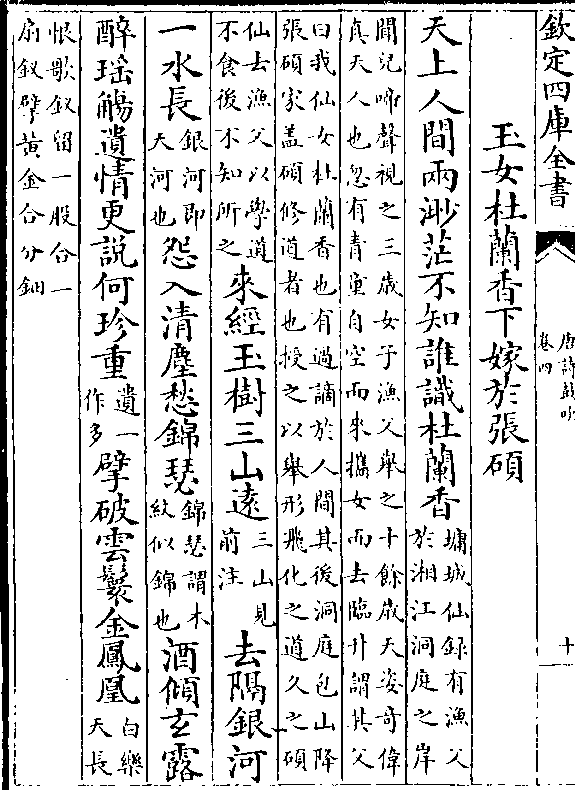 欽定四庫全書
唐詩鼓吹
卷四
十
玉女杜蘭香下嫁於張碩
天上人間兩渺茫不知誰識杜蘭香
墉城仙録有漁父
於湘江洞庭之岸
聞兒啼聲視之三歳女子漁父舉之十餘歳天姿奇偉
真天人也忽有青童自空而來攜女而去臨升謂其父
曰我仙女杜蘭香也有過謫於人間其後洞庭包山降
張碩家盖碩修道者也授之以舉形飛化之道久之碩
仙去漁父以學道
不食後不知所之
來經玉樹三山逺
三山見
前注
去隔銀河
一水長
銀河即
天河也
怨入清塵愁錦瑟
錦瑟謂木
紋似錦也
酒傾玄露
醉瑶觴遺情更說何珍重
遺一
作多
擘破雲鬟金鳳凰
白樂
天長
恨歌釵留一股合一
扇釵擘黄金合分鈿